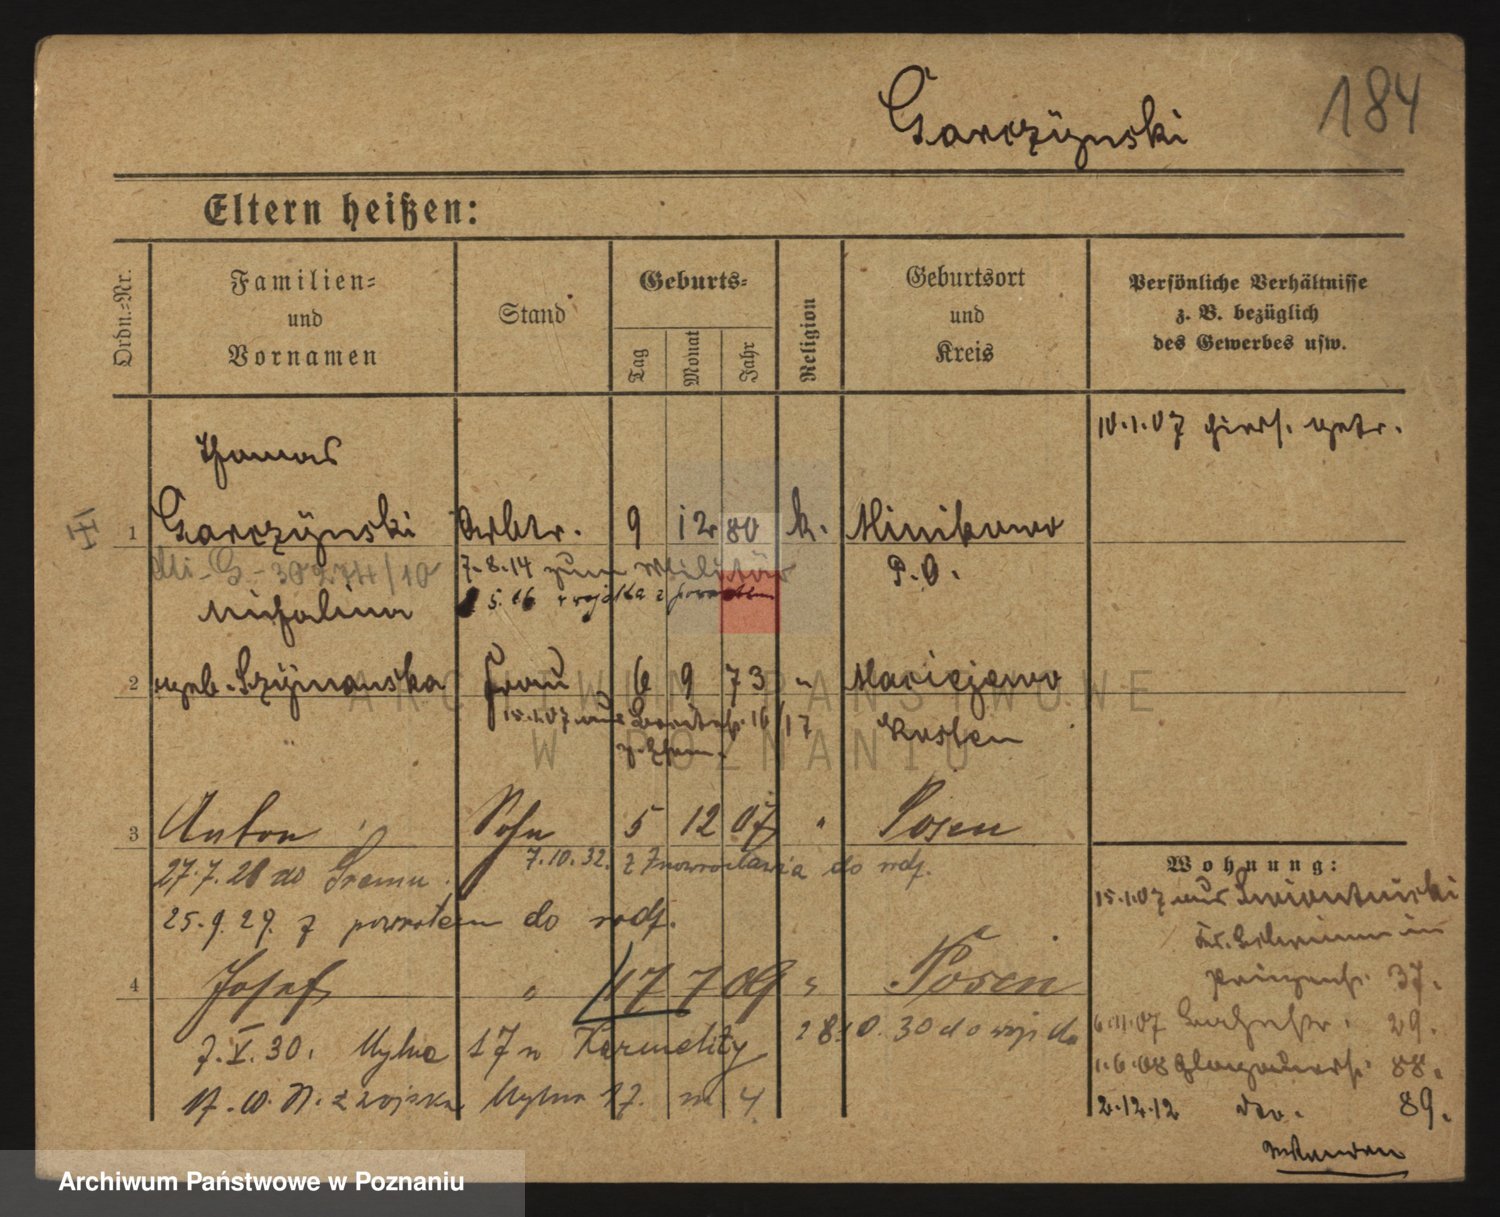 184
Garczÿnski
Eltern heißen:
Ordn.=Nr.
Familien=
und
Vornamen
Stand
Geburts=
Tag
Monat
Jahr
Religion
Geburtsort
und
Kreis
Persönliche Verhältnisse
z. B. bezüglich
des Gewerbes usw.
10.1.07 hiers. getr.
Thomas
1 Garczÿnski Arbtr. 9 12 80 k. Minikowo
7.8.14 zum Militär P.O.
5.16 z wojska z powrotem
Michalina
2 geb. Szÿmanska Frau 6 9 73 " Maciejewo
15.1.07 aus 16/17 Kosten
3 Anton Sohn 5 12 07 " Posen
27.7.28 do Śremu. 7.10.32. z Inowrocławia do rodz.
25.9.29. z powrotem do rodz.
4 Josef " 17 7 09 " Posen
7.V.30. Mylna 17 u Karmelity 28.10.30 do wojska
z wojska Mylna 17. m 4
Wohnung:
15.1.07 aus
37.
6.11.07 29.
1.6.08 Glogauerst. 88.
2.12.12 do. 89.
wenden
ARCHIWUM PAŃSTWOWE
W POZNANIU
Archiwum Państwowe w Poznaniu